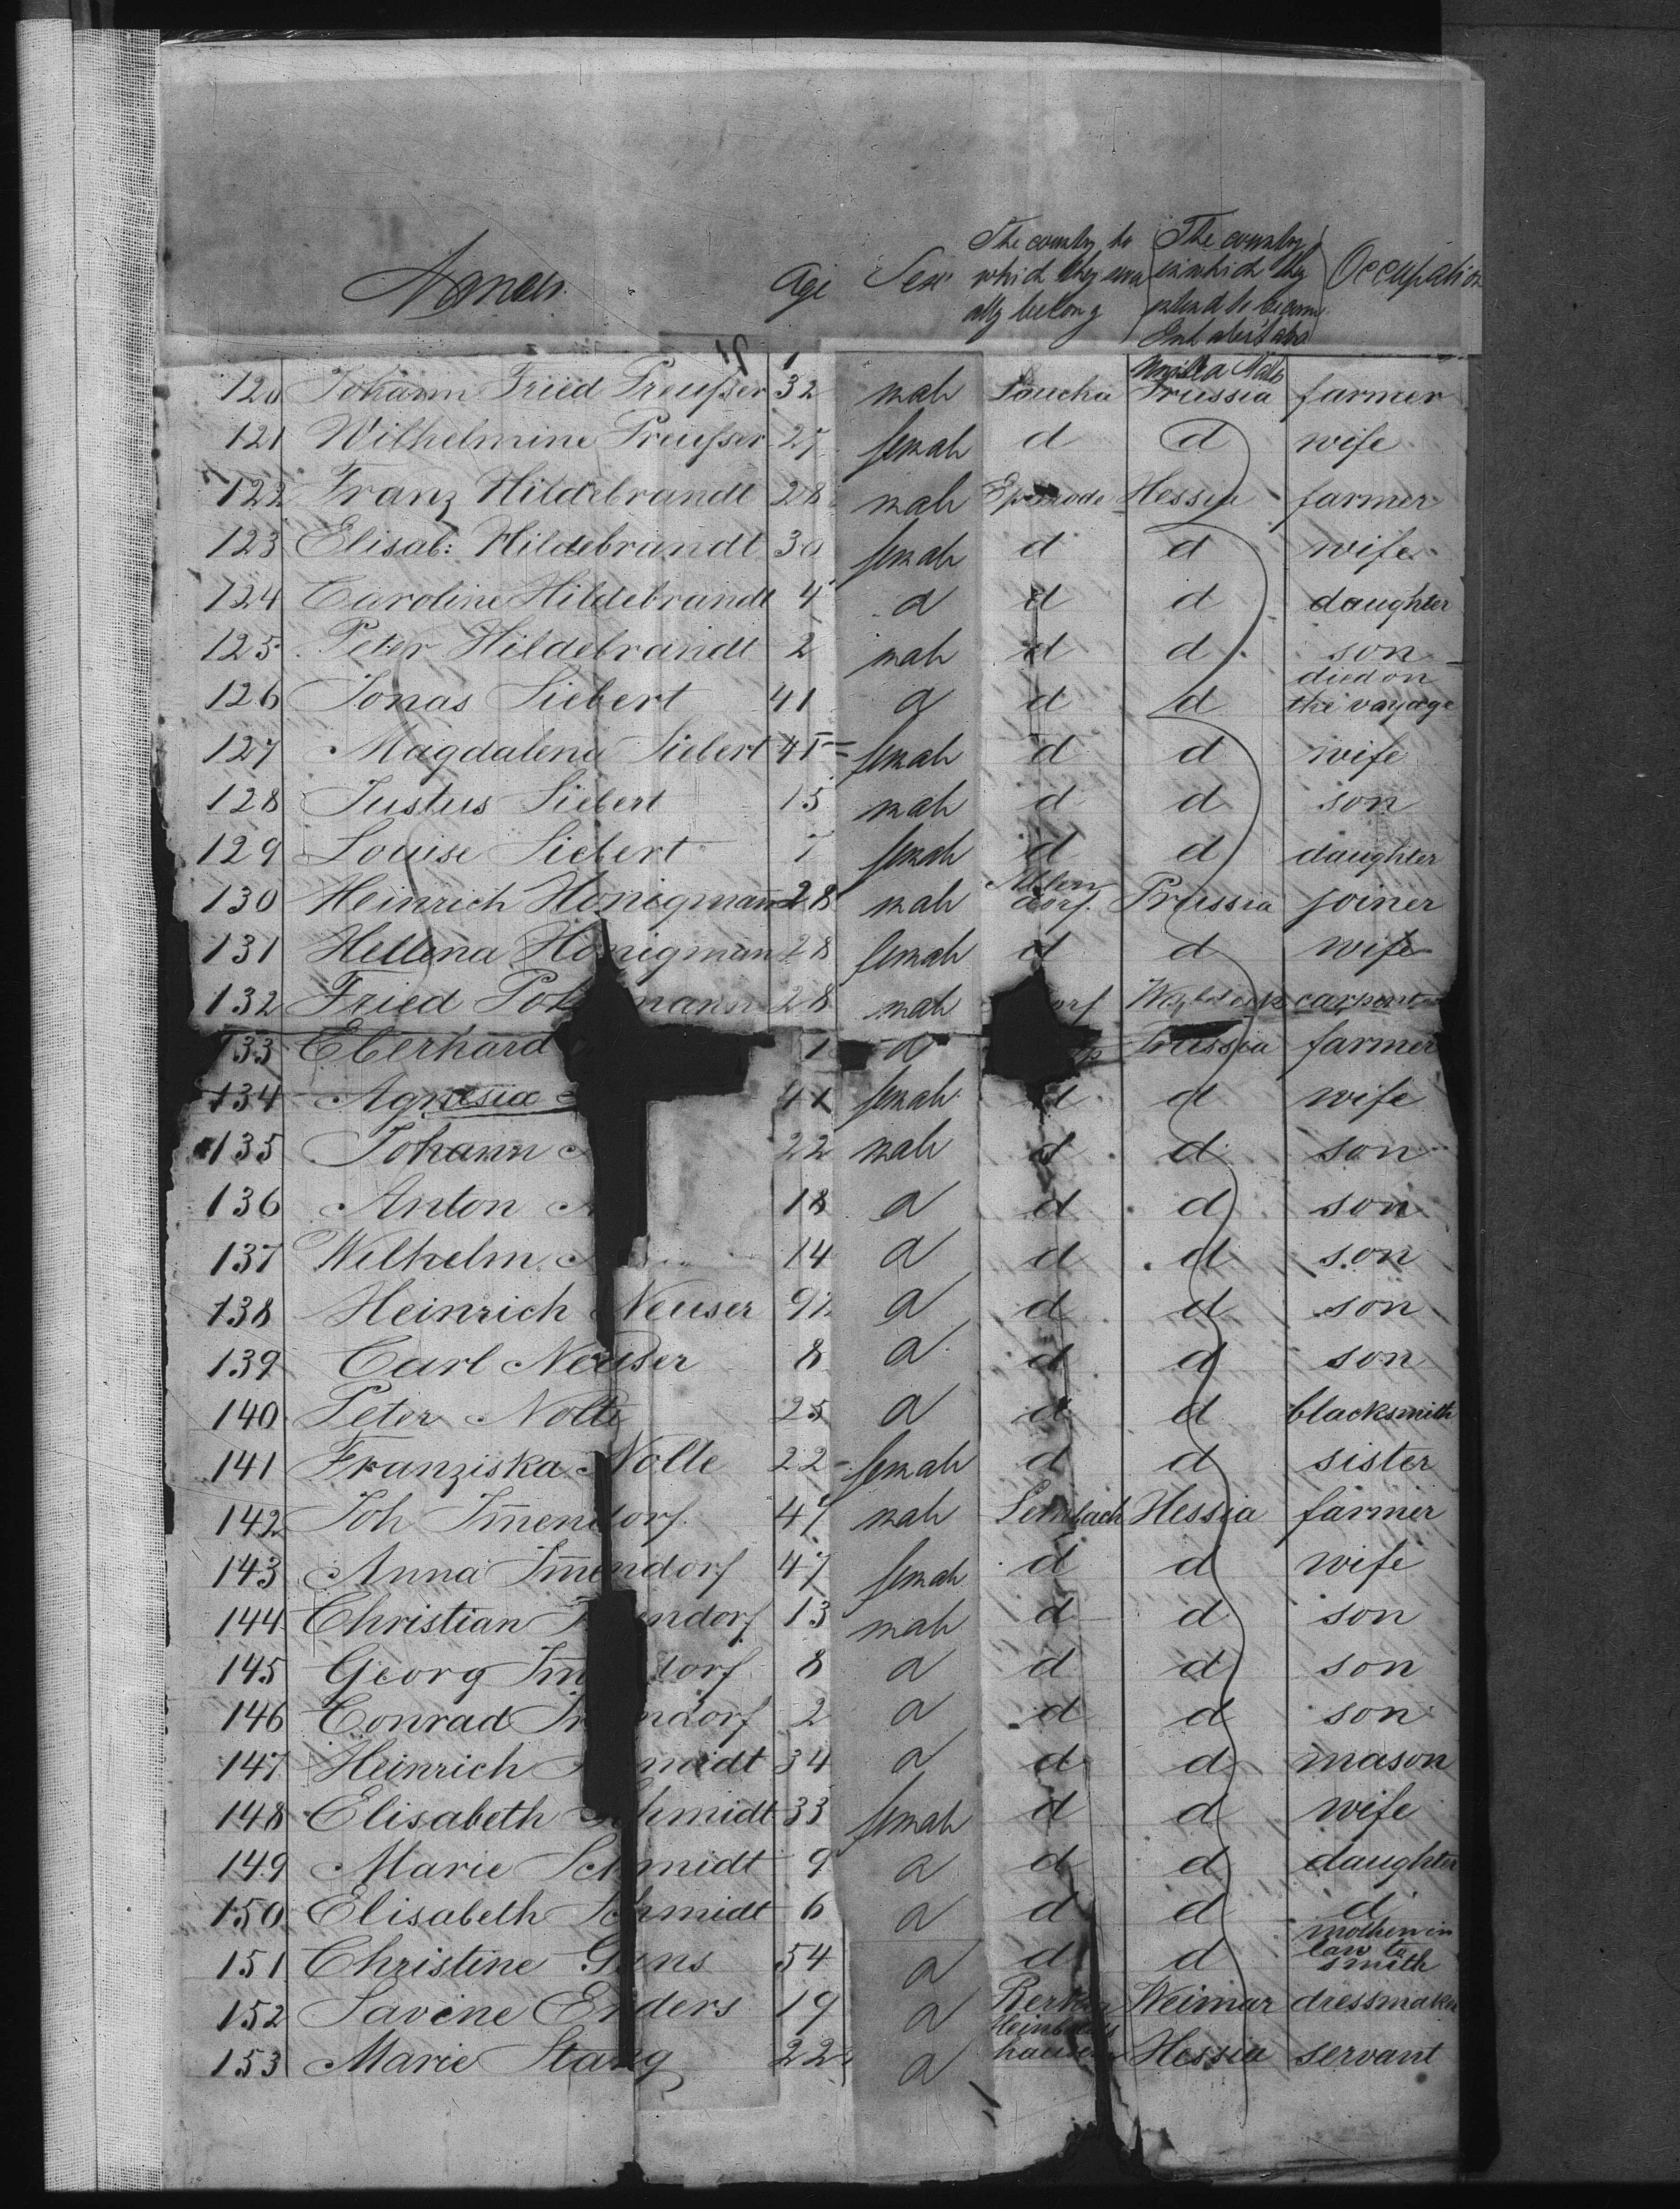 Names Age Sex The country to which they sever ally belong The country in which they intend to become Inhabitants Occupation
United States
120 Johann Fried Preußer 32 male Laucha Prussia farmer
121 Wilhelmine Preußer 27 female d d wife
122 Franz Hildebrandt 28 male Hessia farmer
123 Elisab: Hildebrandt 30 female d d wife
124 Caroline Hildebrandt 4 d d d daughter
125 Peter Hildebrandt 2 male d d son
126 Jonas Siebert 41 d d d died on the voyage
127 Magdalena Siebert 45 female d d wife
128 Justus Siebert 15 male d d son
129 Louise Siebert 7 female d d daughter
130 Heinrich Honigmann 28 male dorf Prussia joiner
131 Hellena Honigmann 28 female d d wife
132 Fried mann 28 male orf carpenter
133 Eberhard d Prussia farmer
134 Agnesia 41 female d d wife
135 Johann 22 male d d son
136 Anton 18 d d d son
137 Wilhelm 14 d d d son
138 Heinrich Neuser d d d son
139 Carl Neuser 8 d d d son
140 Peter Nolte 25 d d d blacksmith
141 Franziska Nolte 22 female d d sister
142 Joh Im̅endorf 47 male Leimbach Hessia farmer
143 Anna Im̅endorf 47 female d d wife
144 Christian endorf 13 male d d son
145 Georg Im̅ dorf 8 d d d son
146 Conrad ndorf 2 d d d son
147 Heinrich midt 34 d d d mason
148 Elisabeth Schmidt 33 female d d wife
149 Marie Schmidt 9 d d d daughter
150 Elisabeth Schmidt 6 d d d d
151 Christine 54 d d d mother in law to smith
152 Savine Enders 19 d Weimar dressmaker
153 Marie Stang 22 d hausen Hessia servant